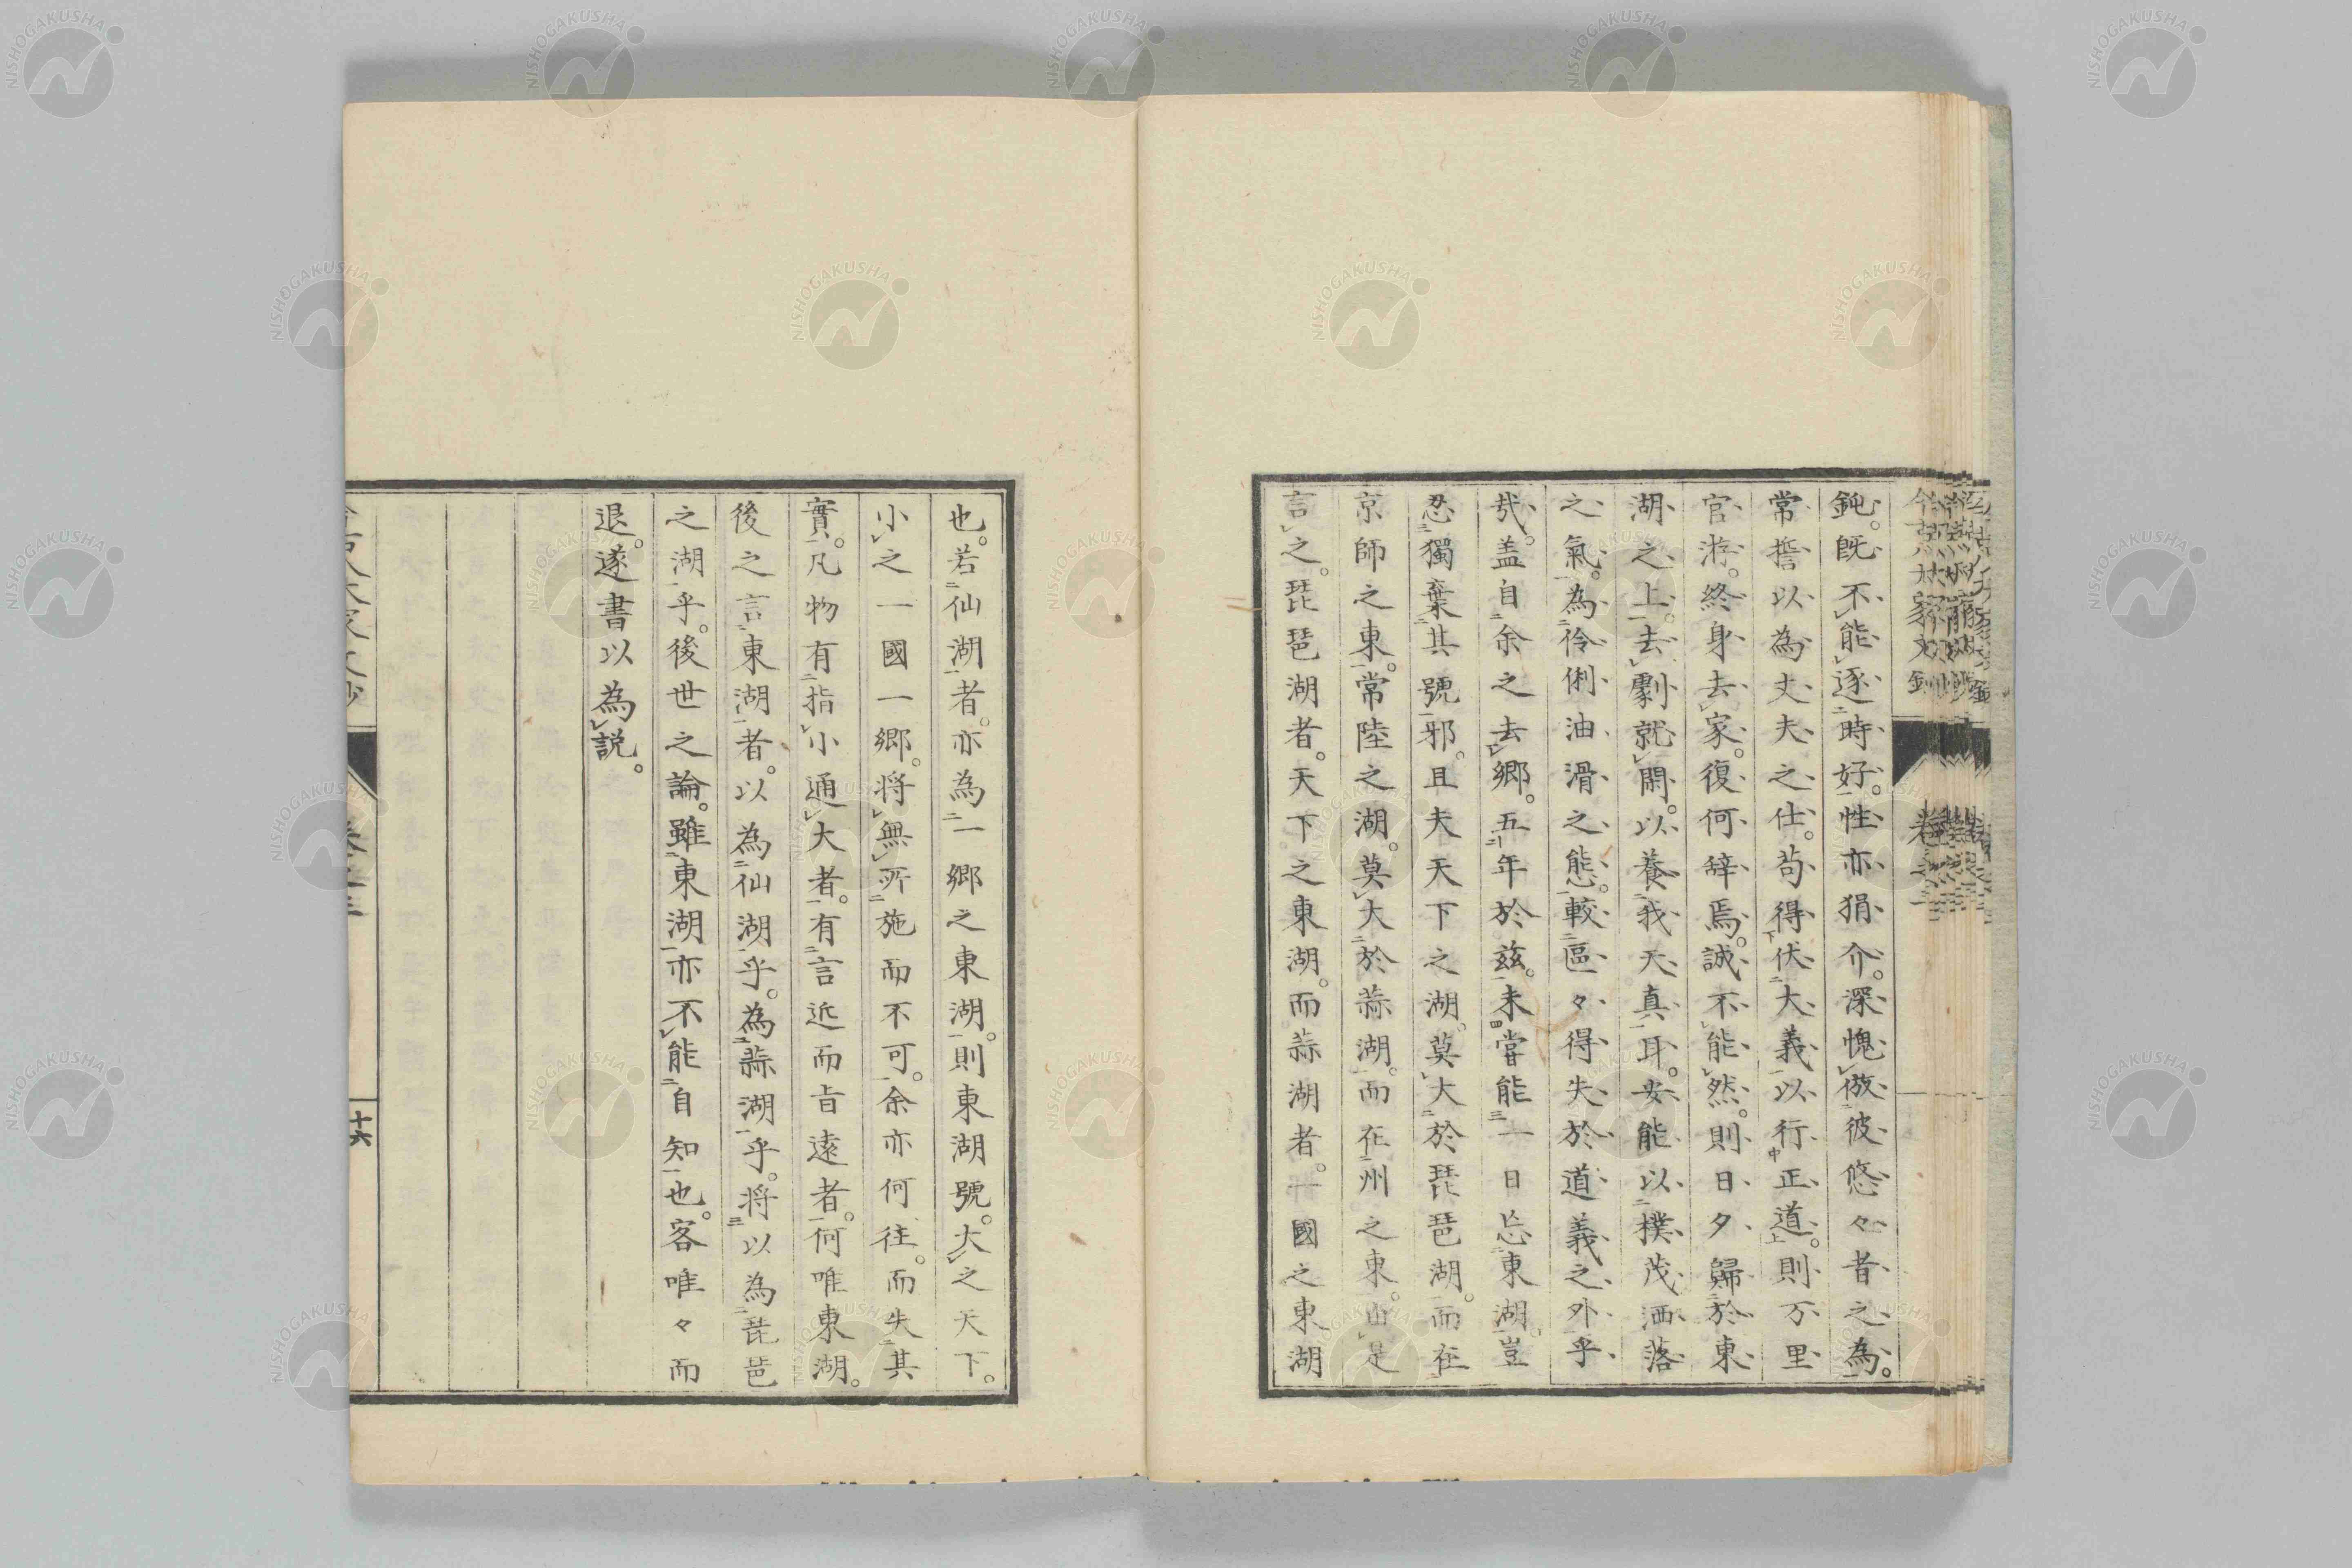 鈍。既不能逐時好。性亦狷介。深愧倣彼悠々者之為。
常誓以為丈夫之仕。苟得伏大義以行正道。則万里
官游。終身去家。復何辞焉。誠不能然。則日夕歸於東
湖之上。去劇就閑。以養我天真耳。安能以樸茂洒落
之氣。為伶俐油滑之態。較區々得失於道義之外乎
哉。盖自余之去郷。五年於茲。未嘗能一日忘東湖。豈
忍獨棄其號邪。且夫天下之湖。莫大於琵琶湖。而在
京師之東。常陸之湖。莫大於蒜湖。而在州之東。由是
言之。琵琶湖者。天下之東湖。而蒜湖者。一國之東湖
也。若仙湖者。亦為一郷之東湖。則東湖號。大之天下。
小之一國一郷。将無所施而不可。余亦何往。而失其
實。凡物有指小通大者。有言近而旨遠者。何唯東湖。
後之言東湖者。以為仙湖乎。為蒜湖乎。将以為琵琶
之湖乎。後世之論。雖東湖亦不能自知也。客唯々而
退。遂書以為説。
十六
NISHOGAKUSHA